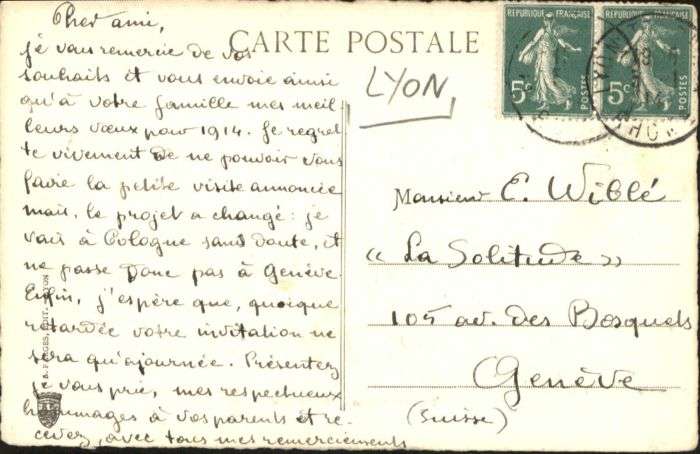 Cher ami,
je vous remercie de vos
souhaits et vous envoie ainsi
qu'à votre famille mes meil
leurs vœux pour 1914. Je regret
te vivement de ne pouvoir vous
faire la petite visite annoncée
mais, le projet a changé : je
vais à Cologne sans doute, et
ne passe donc pas à Genève.
Enfin, j'espère que, quoique
retardée votre invitation ne
sera qu'ajournée. Présentez
je vous prie, mes respectueux
hommages à vos parents et re-
cevez, avec tous mes remerciements
CARTE POSTALE
LYON
REPUBLIQUE FRANÇAISE
5c
POSTES
REPUBLIQUE FRANÇAISE
5c
POSTES
LYON
RHONE
Monsieur E. Wiblé
« La Solitude »
105 av. des Bosquets
Genève
(Suisse)
EDIT. LYON